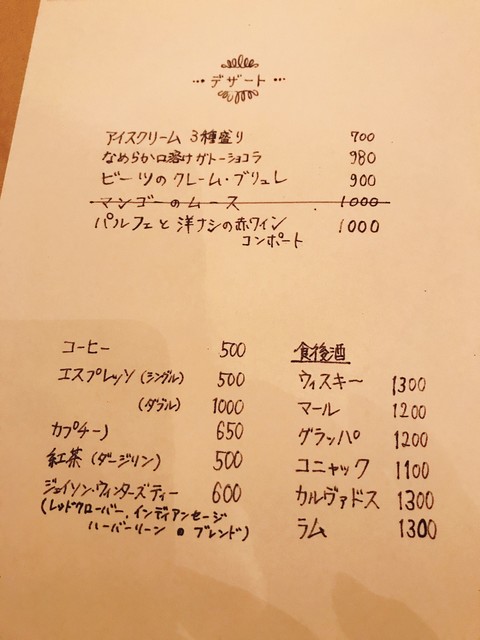 デザート
アイスクリーム 3種盛り 700
なめらか口溶けガトーショコラ 980
ビーツのクレーム・ブリュレ 900
マンゴーのムース 1000
パルフェと洋ナシの赤ワイン 1000
コンポート
コーヒー 500
エスプレッソ (シングル) 500
(ダブル) 1000
カプチーノ 650
紅茶 (ダージリン) 500
ジェイソン・ウィンターズティー 600
(レッドクローバー、インディアンセージ
ハーバーリーン のブレンド)
食後酒
ウィスキー 1300
マール 1200
グラッパ 1200
コニャック 1100
カルヴァドス 1300
ラム 1300